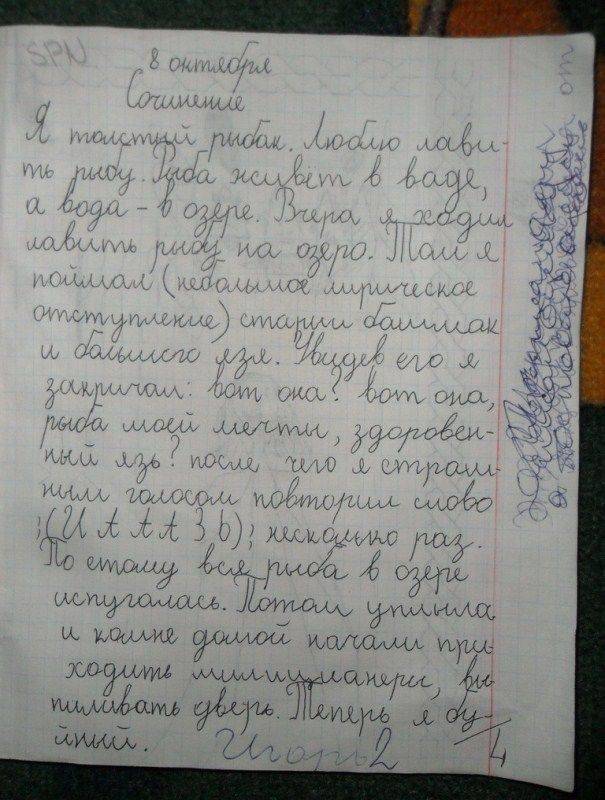 SPN
8 октября
Сочинение
Я толстый рыбак. Люблю лави-
ть рыбу. Рыба живёт в ваде,
а вода - в озере. Вчера я ходил
лавить рыбу на озеро. Там я
поймал (небольшое лирическое
отступление) старии башмак
и большого язя. Увидев его я
закричал: вот она? вот она,
рыба моей мечты, здоровен-
ный язь? после чего я страш-
ным голосом повторил слово
;(И А А А З Ь); несколько раз.
По етому вся рыба в озере
испугалась. Потом уплыла
и комне домой начали при-
ходить милицианеры, вы
пиливать дверь. Теперь я бу-
йный.
Игорь 2
4
от